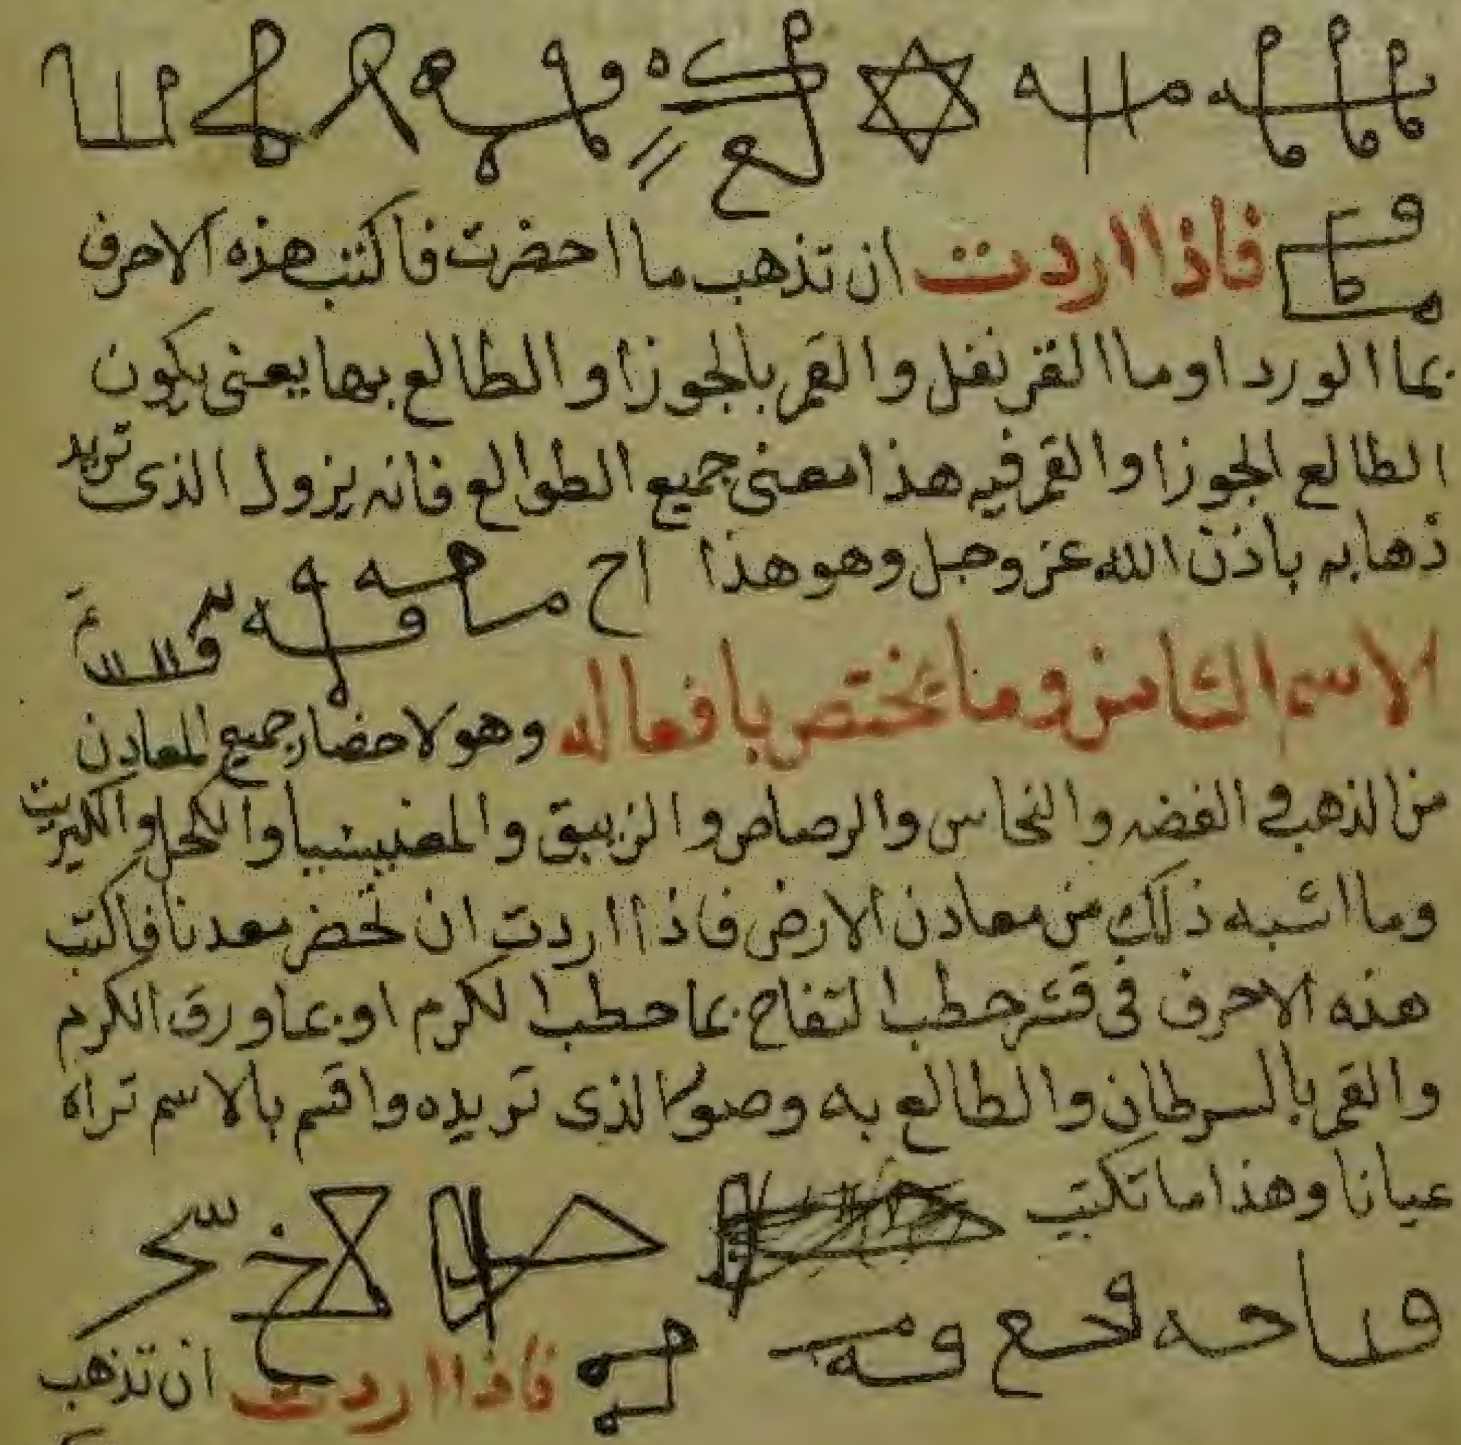 فاذا اردت ان تذهب ما احضرت فاكتب هذه الاحرف
بما الورد او ما القرنفل والقمر بالجوزا والطالع بها يعنى يكون
الطالع الجوزا والقمر فيه هذا معنى جميع الطوالع فانه يزول الذى تريد
ذهابه باذن الله عز وجل وهو هذا اح
الاسم الثامن وما يختص بافعاله وهو لاحضار جميع المعادن
من الذهب والفضه والنحاس والرصاص والزيبق والمغنيسيا والكحل والكبريت
وما اشبه ذلك من معادن الارض فاذا اردت ان تحضر معدنا فاكتب
هذه الاحرف فى قشر حطب التفاح بما حطب الكرم او بما ورق الكرم
والقمر بالسرطان والطالع به وصور الذى تريده واقسم بالاسم تراه
عيانا وهذا ما تكتب
فاذا اردت ان تذهب